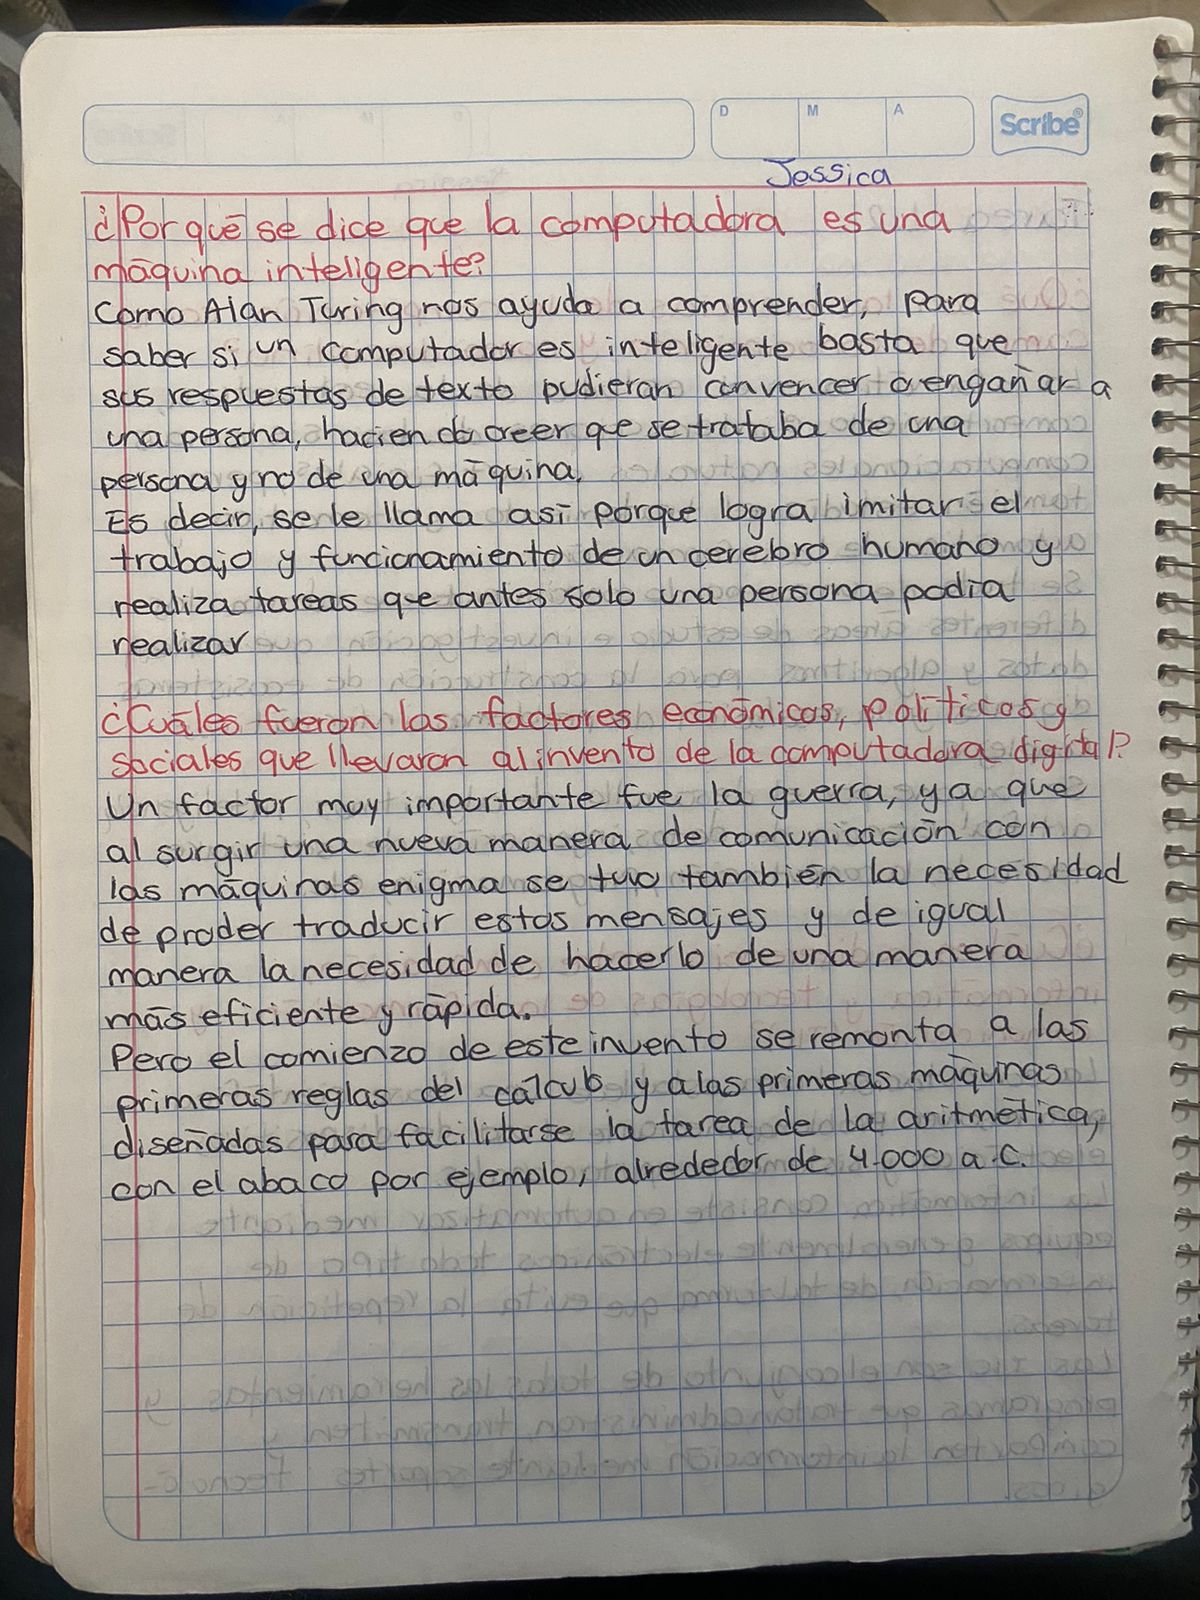 D M A Scribe®
Jessica
¿Por qué se dice que la computadora es una
máquina inteligente?
Como Alan Turing nos ayuda a comprender, para
saber si un computador es inteligente basta que
sus respuestas de texto pudieran convencer o engañar a
una persona, haciendo creer que se trataba de una
persona y no de una máquina.
Es decir, se le llama así porque logra imitar el
trabajo y funcionamiento de un cerebro humano y
realiza tareas que antes solo una persona podía
realizar
¿Cuáles fueron los factores económicos, políticos y
sociales que llevaron al invento de la computadora digital?
Un factor muy importante fue la guerra, ya que
al surgir una nueva manera de comunicación con
las máquinas enigma se tuvo también la necesidad
de proder traducir estos mensajes y de igual
manera la necesidad de hacerlo de una manera
más eficiente y rápida.
Pero el comienzo de este invento se remonta a las
primeras reglas del cálculo y a las primeras máquinas
diseñadas para facilitarse la tarea de la aritmética,
con el abaco por ejemplo, alrededor de 4.000 a.C.